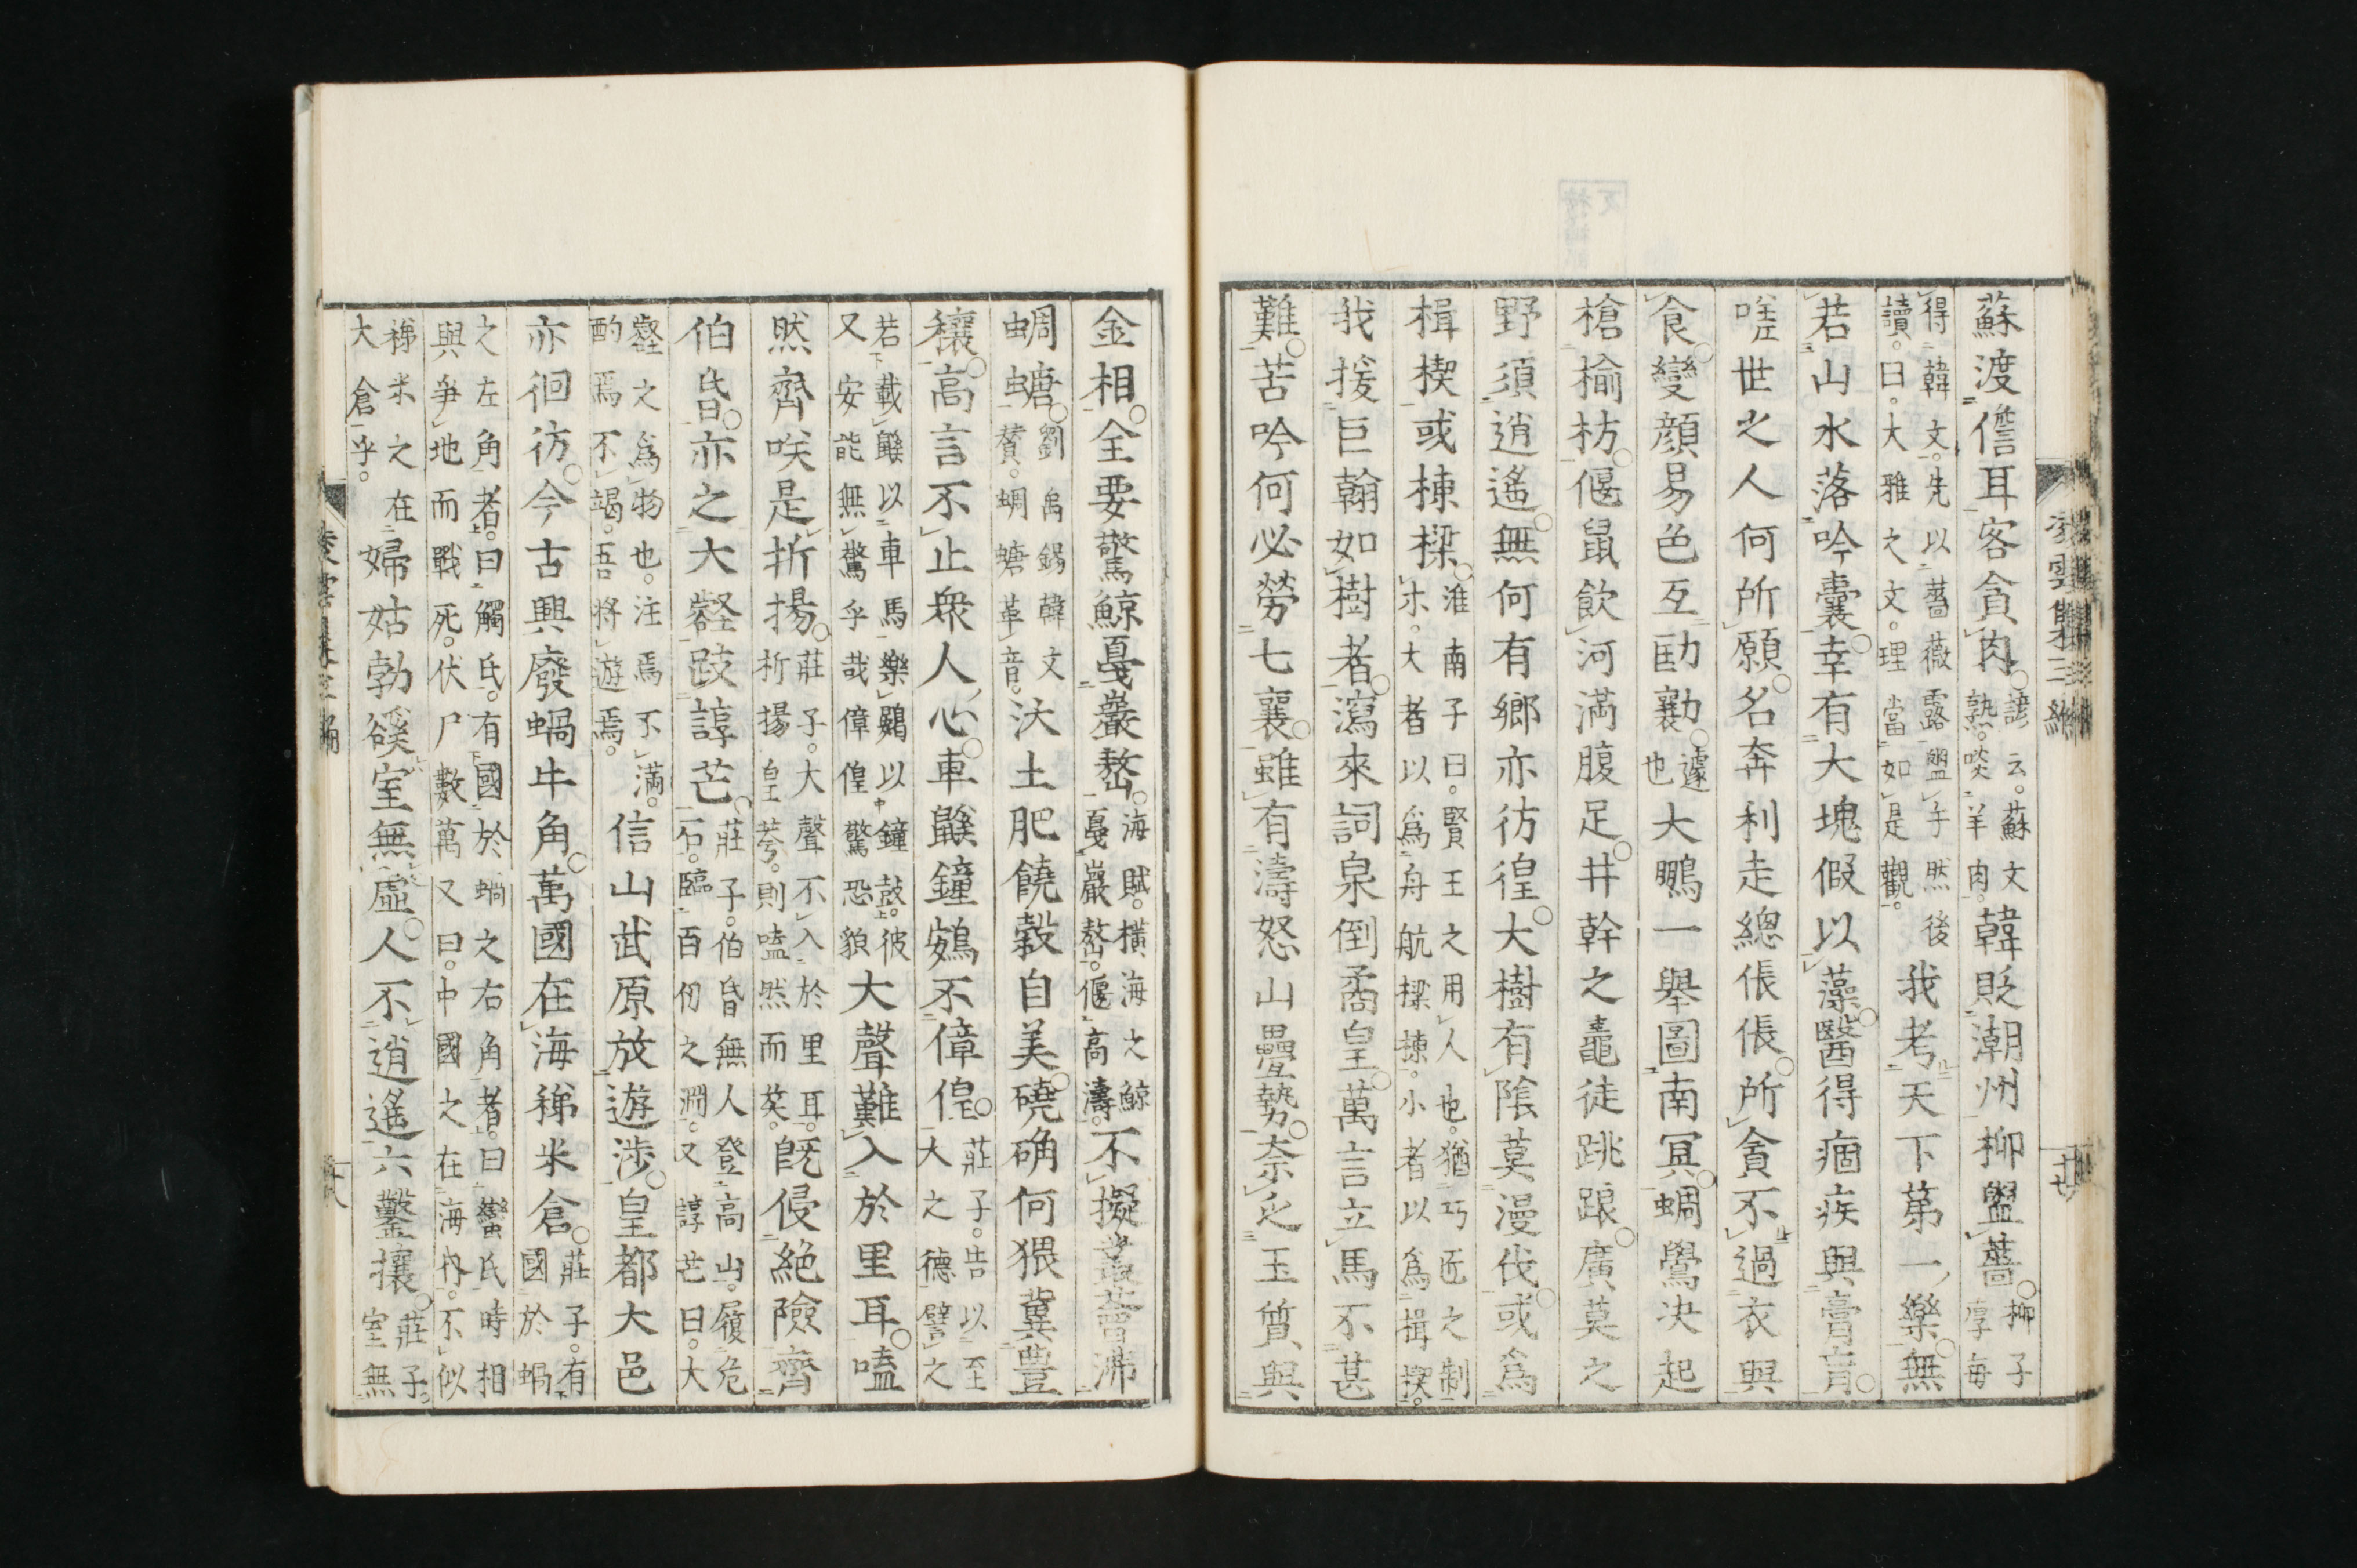 蘇渡儋耳客貪肉諺云蘇文熟啖羊肉韓貶潮州柳盥薔柳子厚每
得韓文先以薔薇露盥子然後讀曰大雅之文理當如是觀我考天下第一樂無
若山水落吟囊幸有大塊假以藻醫得痼疾與膏肓
嗟世之人何所願名奔利走總倀倀所貪不過衣與
食變顔易色互劻勷遽也大鵬一舉圖南冥蜩鷽决起
槍榆枋偃鼠飲河満腹足井幹之鼃徒跳踉廣莫之
野須逍遙無何有鄉亦彷徨大樹有陰莫漫伐或為
楫楔或棟樑淮南子曰賢王之用人也猶巧匠之制木大者以為舟航樑棟小者以為楫楔
我援巨翰如樹者瀉來詞泉倒矞皇萬言立馬不甚
難苦吟何必勞七襄雖有濤怒山疊勢奈乏玉質與
金相全要驚鯨戞巖嶅海賦橫海之鯨戞巖嶅偃高濤不擬叢薈沸
蜩螗劉禹錫韓文賛蜩螗革音汏土肥饒穀自美磽确何猥冀豊
穰高言不止衆人心車鼷鐘鴳不偉偟莊子告以至大之德譬之
若載鼷以車馬樂鴳以鐘鼓彼又安能無驚乎哉偉偟驚恐貌大聲難入於里耳嗑
然齊咲是折揚莊子大聲不入於里耳折揚皇荂則嗑然而笑既侵絶險齊
伯昏亦之大壑跂諄芒莊子伯昏無人登高山履危石臨百仞之淵又諄芒曰大
壑之為物也注焉不満酌焉不竭吾将遊焉信山武原放遊渉皇都大邑
亦徊彷今古興廢蝸牛角萬國在海稊米倉莊子有國於蝸
之左角者曰觸氏有國於蝸之右角者曰蠻氏時相與爭地而戰死伏尸數萬又曰中國之在海内不似
稊米之在大倉乎婦姑勃谿室無虛人不逍遙六鑿攘莊子室無